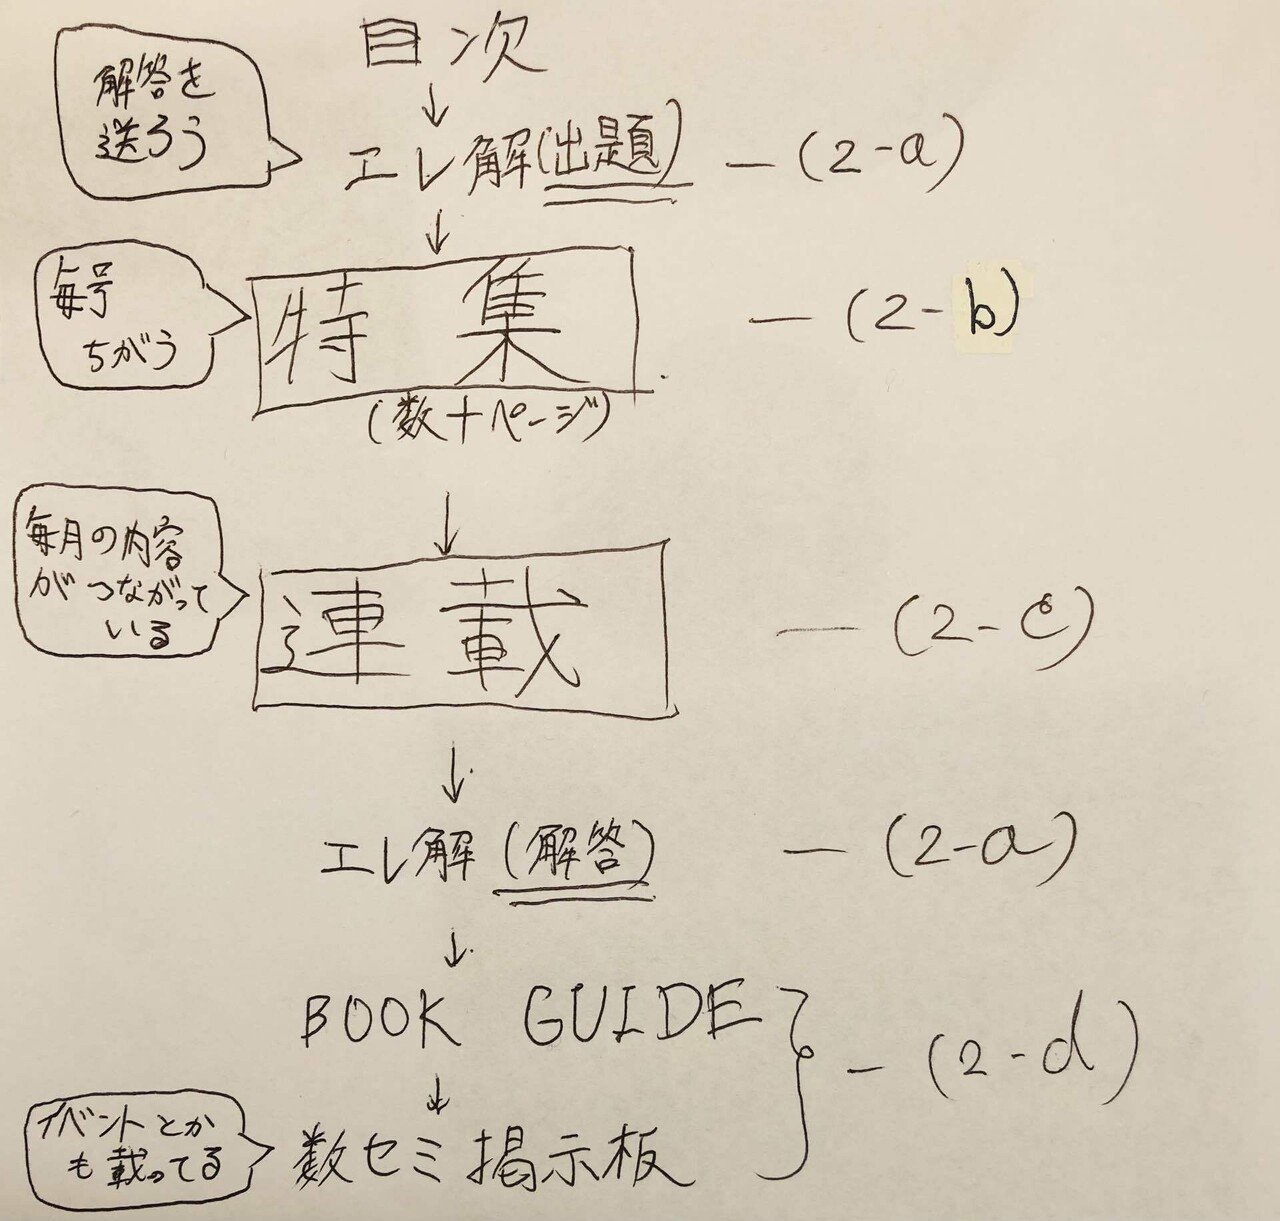 目次
↓
解答を
送ろう
エレ解(出題) — (2-a)
↓
毎号
ちがう
特集 — (2-b)
(数十ページ)
↓
毎月の内容
がつながって
いる
連載 — (2-c)
↓
エレ解(解答) — (2-a)
↓
BOOK GUIDE
↓
— (2-d)
イベントとか
も載ってる
数セミ掲示板